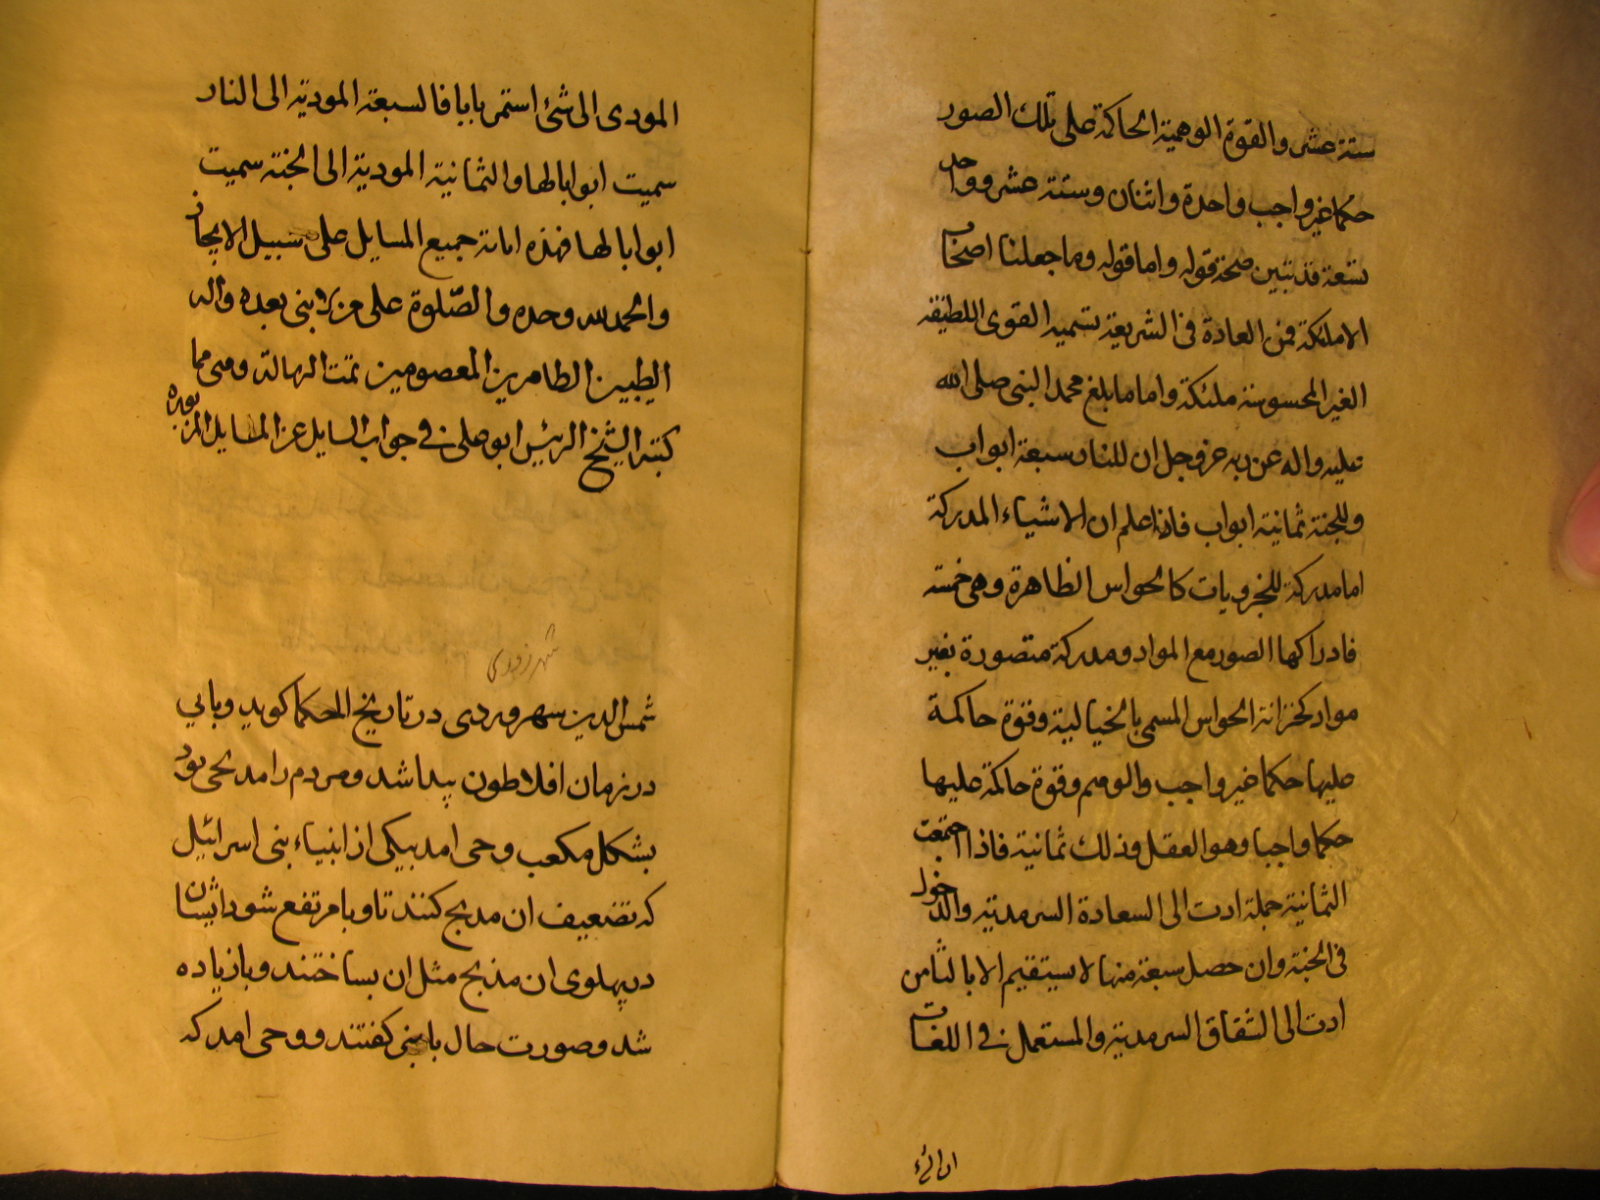 ستة عشر والقوة الوهمية الحاكمة على تلك الصور
حكما غير واجب فواحدة واثنان وستة عشر وواحد
تسعة عشر فقد تبين صحة قوله واما قوله وما جعلنا اصحاب
الا ملئكة فمن العادة فى الشريعة تسمية القوى اللطيفة
الغير المحسوسة ملئكة واما ما بلغ محمد النبى صلى الله
عليه واله عن ربه عز وجل ان للنار سبعة ابواب
وللجنة ثمانية ابواب فاذا علم ان الاشياء المدركة
اما مدركة للجزويات كالحواس الظاهرة وهى خمسة
فادراكها الصور مع المواد ومدركة متصورة بغير
مواد كخزانة الحواس المسمى بالخيالية وقوة حاكمة
عليها حكما غير واجب والوهم وقوة حاكمة عليها
حكما واجبا وهو العقل وذلك ثمانية فاذا اجتمعت
الثمانية جملة ادت الى السعادة السرمدية والدخول
فى الجنة وان حصل سبعة منها لا يستقيم الا بالثامن
ادت الى الشقاق السرمدية والمستعمل فى اللغات
ان الشئ
المودى الى شئ استمر بابا فالسبعة المودية الى النار
سميت ابوابا لها والثمانية المودية الى الجنة سميت
ابوابا لها فهذه ابانة جميع المسايل على سبيل الايجاز
والحمد لله وحده والصّلوة على من لا نبى بعده واله
الطيبين الطاهرين المعصومين تمت الرسالة وهى مما
كتبه الشيخ الرئيس ابو على فى جواب السايل عن المسايل المزبوره
شهرزورى
شمس الدين سهروردى در تاريخ الحكما كويد وبايي
در زمان افلاطون پيدا شد ومردم را مذبحى بود
بشكل مكعب وحى امد بيكى از انبياء بنى اسرائيل
كه تضعيف ان مذبح كنند تا وبا مرتفع شود ايشان
در پهلوى ان مذبح مثل ان بساختند وبا زياده
شد وصورت حال با نبى كفتند ووحى امد كه